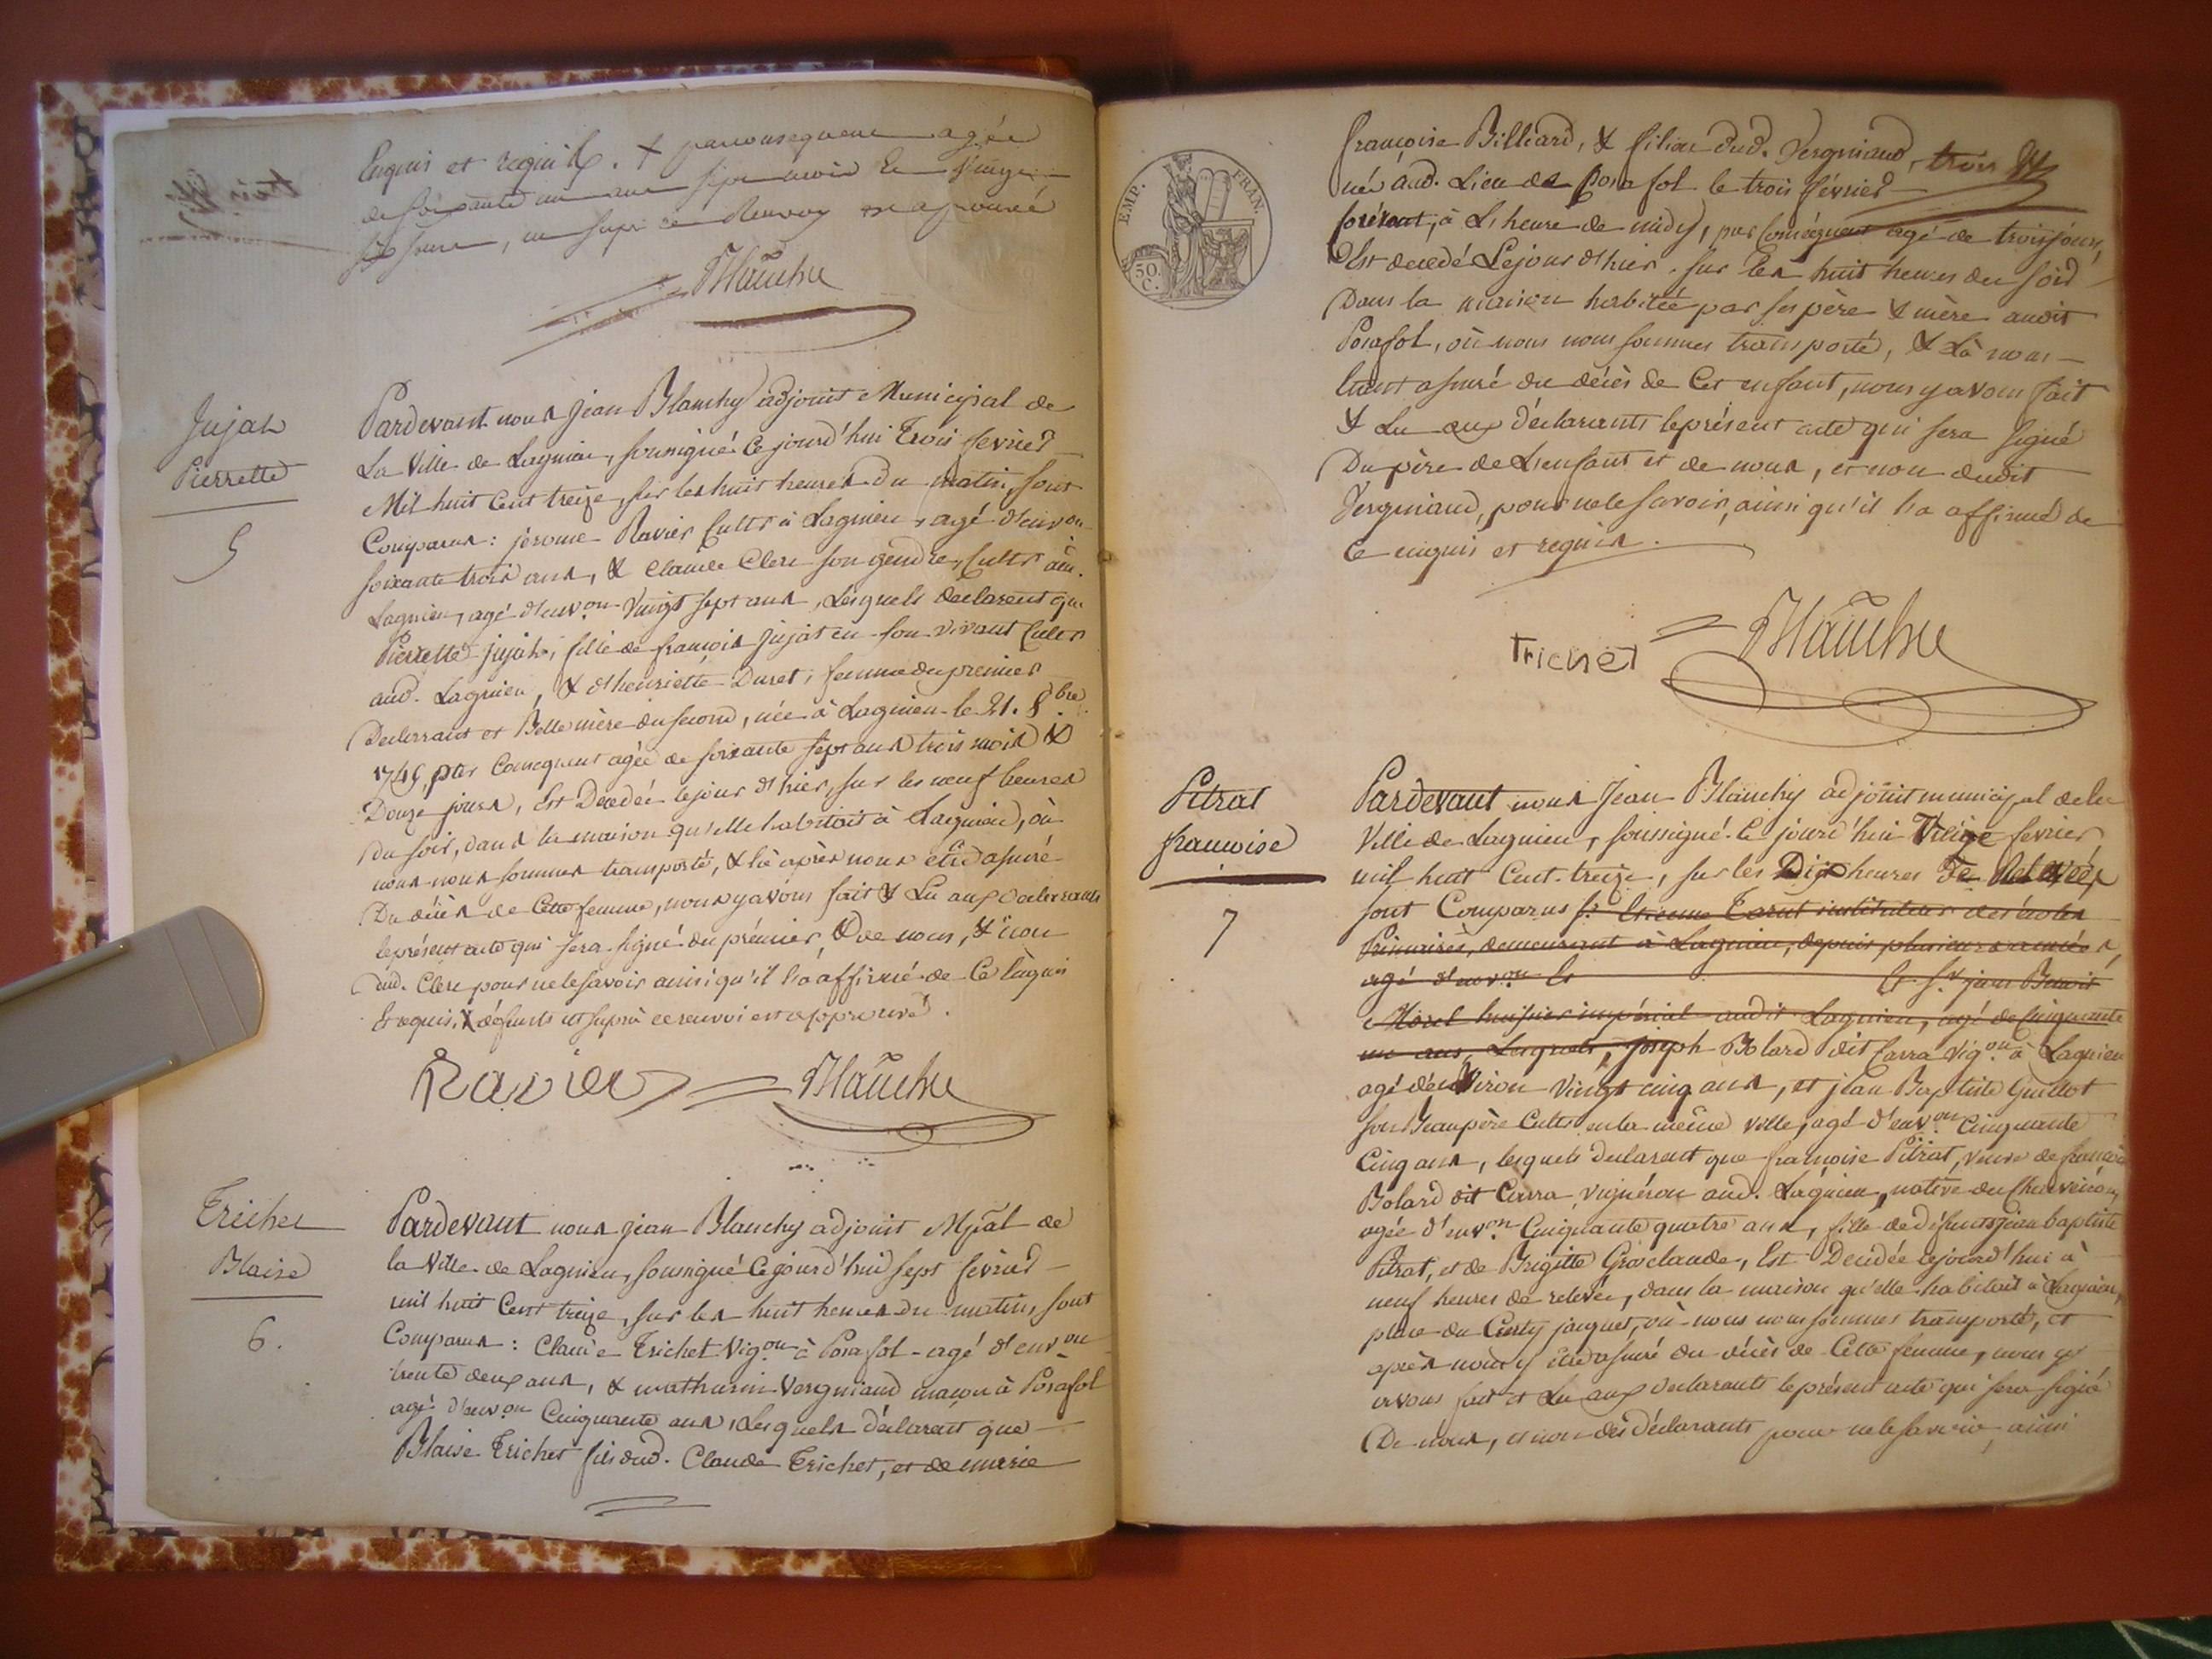 Enquis et requis. + par consequent agée
de soixante un ans sept mois et vingt
jours, ut supr ce Renvoy est aprouvé
Blanchy
Jujat
Pierrette
5
Pardevant nous Jean Blanchy adjoint Municipal de
La Ville de Lagnieu, soussigné Ce jourd'hui trois fevrier
Mil huit Cent treize, sur les huit heures du matin, sont
Comparus : jerome Ravier Cultr à Lagnieu, agé d'environ
soixante trois ans, & Claude Clerc son gendre, Cultr aud.
Lagnieu, agé d'env.on Vingt sept ans, Lesquels declarent que
Pierrette jujat, fille de françois jujat en son vivant Cultr
aud. Lagnieu, & d'henriette Duret, femme du premier
Declarant et Belle mère du second, née à Lagnieu le 21. 8.bre
1745, par Consequent agée de soixante sept ans trois mois &
Douze jours, Est Decedée le jour d'hier, sur les neuf heures
Du soir, dans la maison qu'elle habitoit à Lagnieu, où
nous nous sommes transporté, & là après nous être assuré
Du décès de Cette femme, nous y avons fait & Lu aux declarants
le présent acte qui sera signé du prémier, & de nous, & non
dud. Clerc pour ne le savoir ainsi qu'il l'a affirmé de Ce Enquis
Et requis. X défunts ut suprà ce renvoi est approuvé.
Ravier Blanchy
Trichet
Blaise
6.
Pardevant nous jean Blanchy adjoint Mpal de
la Ville de Lagnieu, soussigné Cejourd'hui sept fevrier
mil huit Cent treize, sur les huit heures du matin, sont
Comparus : Claude Trichet Vig.on à Posafol agé d'env.on
trente deux ans, & mathurin Vergniaud maçon à Posafol
agé d'env.on Cinquante ans, Lesquels déclarent que
Blaise Trichet fils dud. Claude Trichet, et de marie
EMP. FRAN.
50. C.
françoise Billiard, & filiau dud. Vergniaud, trois
né aud. Lieu de Posafol le trois février
présent, à L'heure de midy, par Conséquent agé de trois jours,
Est decedé Le jour d'hier sur les huit heures du soir
Dans la maison habitée par ses père & mère audit
Posafol, où nous nous sommes transporté, & Là nous
étant assuré du décès de Cet enfant, nous y avons fait
& Lu aux déclarants le présent acte qui sera signé
Du père de L'enfant et de nous, et non dudit
Vergniaud, pour ne le savoir, ainsi qu'il l'a affirmé de
Ce enquis et requis.
Trichet Blanchy
Pitrat
françoise
7
Pardevant nous Jean Blanchy adjoint municipal de la
Ville de Lagnieu, soussigné Ce jourd'hui Treize fevrier
mil huit Cent treize, sur les Dix heures De Relevée,
sont Comparus s.r Etienne instituteur des écoles
Primaires, demeurant à Lagnieu, depuis plusieurs années,
agé d'env.on Et s.r jean Benoit
Morel huissier impérial audit Lagnieu, agé de Cinquante
un ans, Lesquels, joseph Bolard dit Carra Vig.on à Lagnieu
agé d'environ Vingt cinq ans, et jean Baptiste Guillot
son Beaupère Cultr en la même ville, agé d'env.on Cinquante
Cinq ans, lesquels declarent que françoise Pitrat, veuve de françois
Bolard dit Carra, vignéron aud. Lagnieu, native du
agée d'env.on Cinquante quatre ans, fille de défunts jean baptiste
Pitrat, et de Brigitte Grosclaude, Est Decédée cejourd'hui à
neuf heures de relevée, dans la maison qu'elle habitait à Lagnieu,
place du jacquet, où nous nous sommes transporté, et
après nous y être assuré du décès de Cette femme, nous y
avons fait et Lu aux declarants le présent acte qui sera signé
De nous, et non des déclarants pour ne le savoir, ainsi